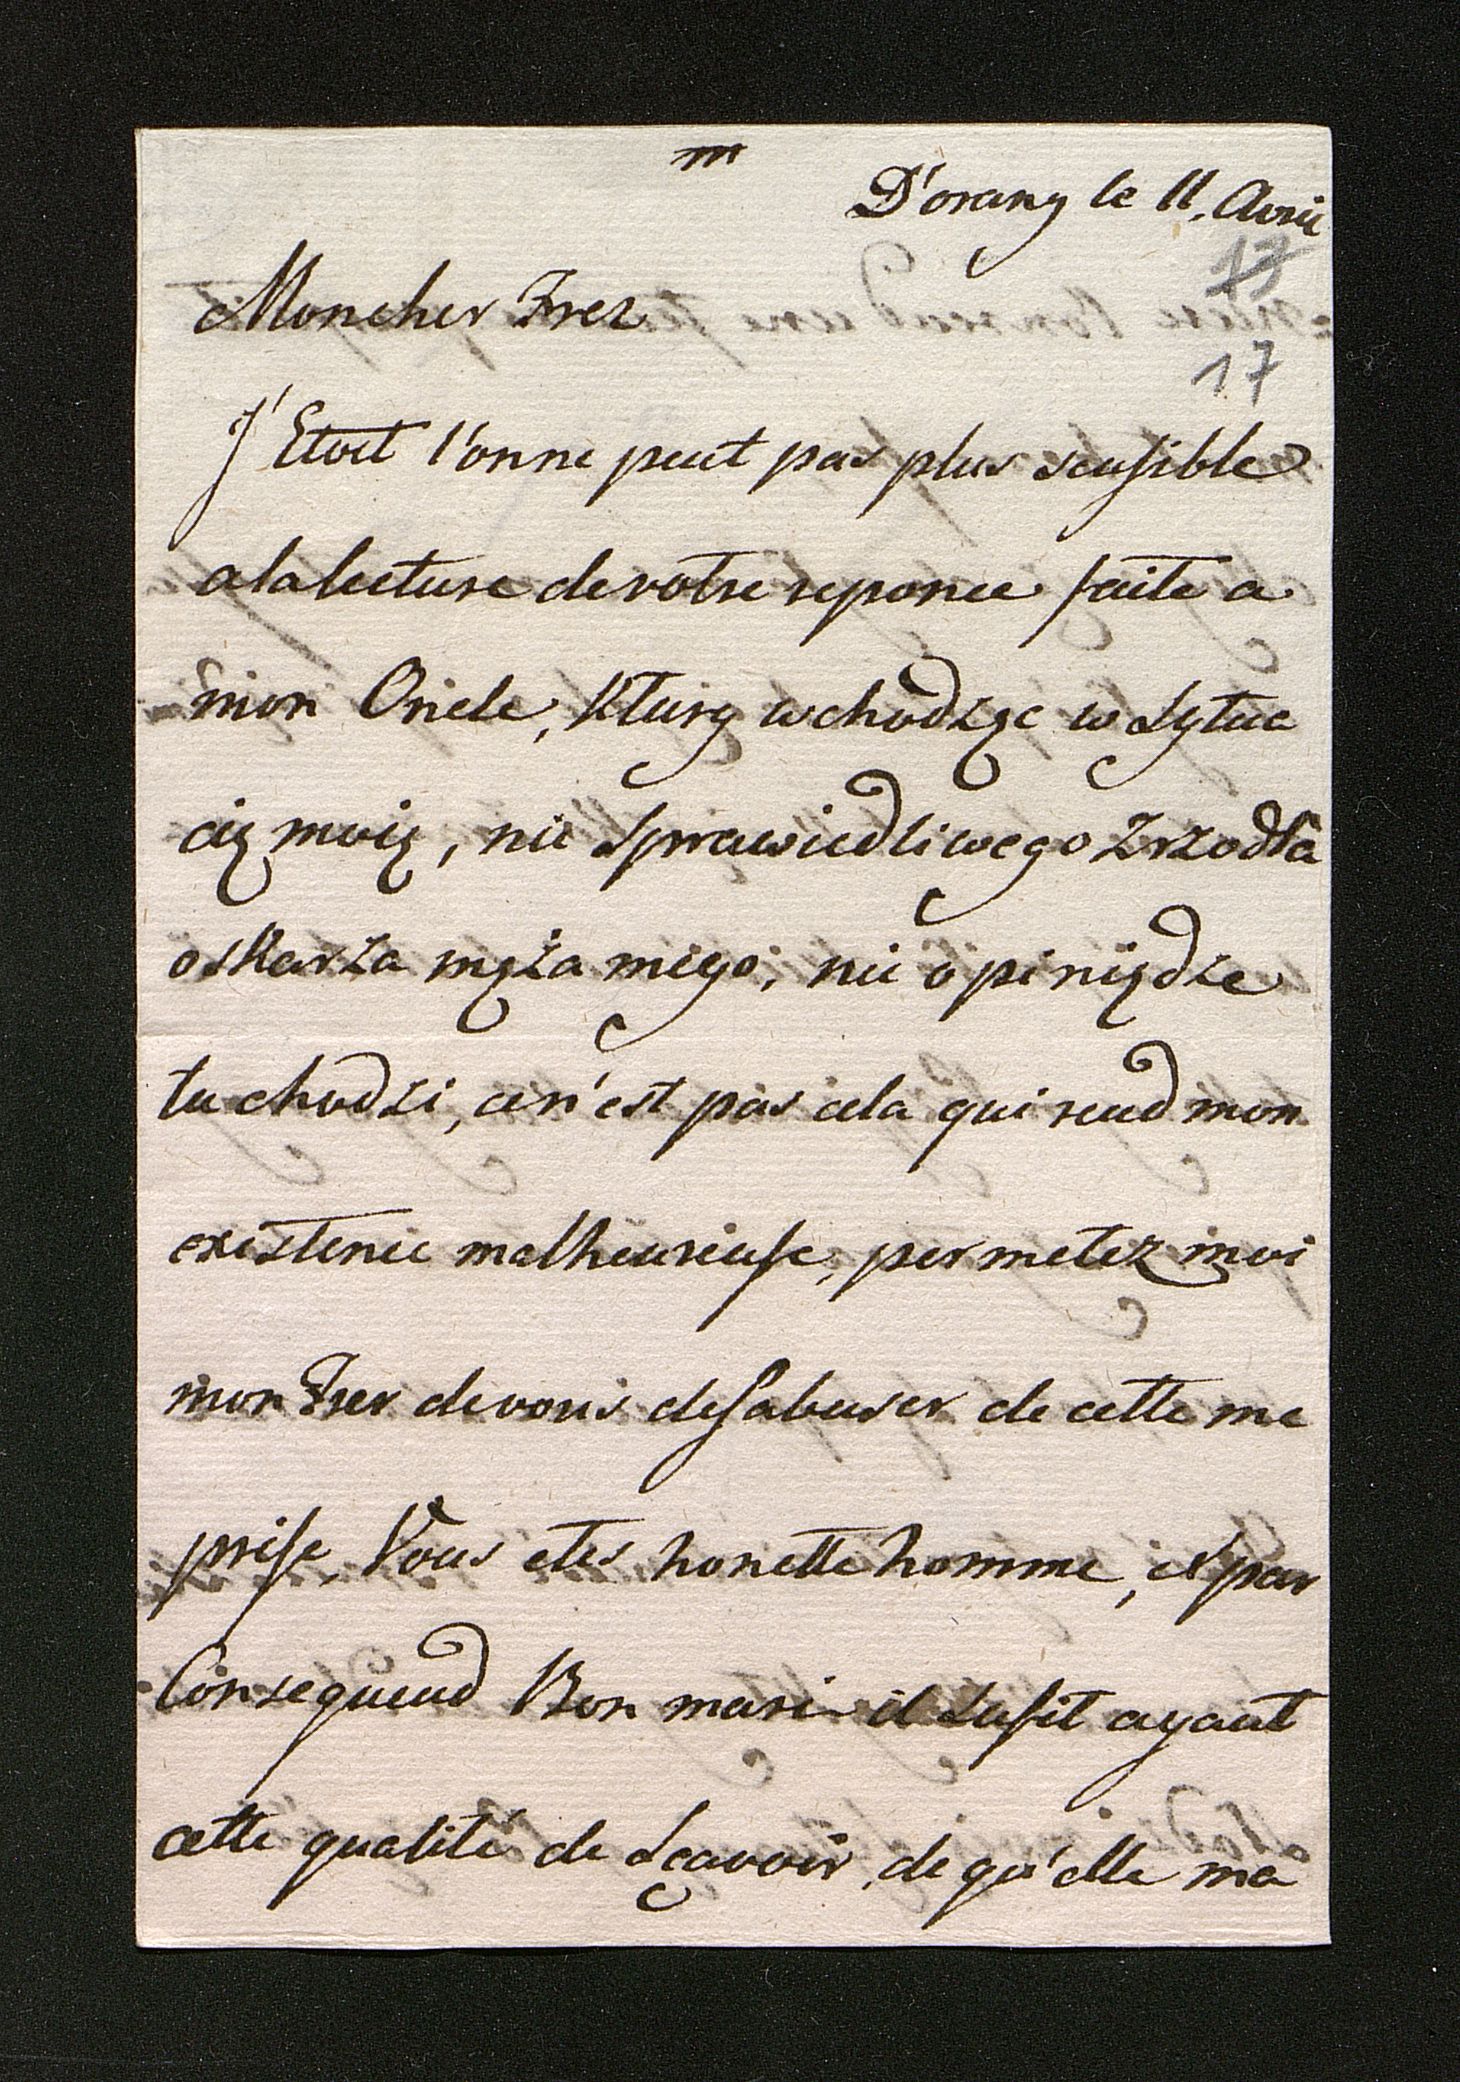 m
D'orany le 11. Avril
17
Moncher Frer
17
J'Etoit l'onne peut pas plus sensible
alalecture devotre reponce faite a
mon Oncle, Ktury wchodząc w Sytua
cią moią, nie Sprawiedliwego Zrzodła
oskarża męża mego, nie o pi niądze
tu chodzi, cen'est pas cela qui rend mon
existence malheureuse, permetez moi
mon Frer devous desabuser de cette me
prise, Vous etes honette homme, et par
Consequend Bon mari il Sufit ayant
cette qualité de Sçavoir, de qu'elle ma